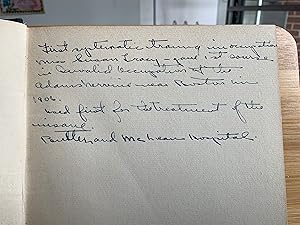 First systematic training in occupation
Miss Susan Tracy, gave 1st course
in Invalid Occupation at the
Adams Nervine near Boston in
1906.
Used first for treatment of the
insane.
Butler, and McLean Hospital.